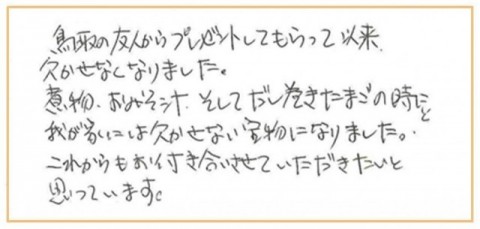 鳥取の友人からプレゼントしてもらって以来
欠かせなくなりました。
煮物、おみそ汁、そしてだし巻きたまごの時にと
我が家には欠かせない宝物になりました。
これからもお付き合いさせていただきたいと
思っています。